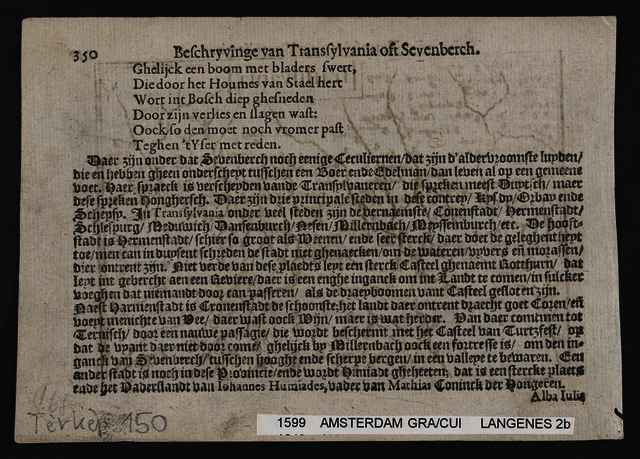 350 Beschryvinge van Transsylvania oft Sevenberch.
Ghelijck een boom met bladers swert,
Die door het Houmes van Stael hert
Wort int Bosch diep ghesneden
Door zijn verlies en slagen wast:
Oock so den moet noch vromer past
Teghen 'tYser met reden.
Daer zijn onder dat Sevenberch noch eenige Ceculiernen/ dat zijn d'aldervroomste luyden/
die en hebben gheen onderscheyt tusschen een Boer ende Edelman/ dan leven al op een gemeene
voet. Haer spraeck is verscheyden vande Transylvaneren/ die spreken meest Duytsch/ maer
dese spreken Honghersch. Daer zijn drie principale steden in dese contrey/ Kysdy/ Orbay ende
Schepsy. In Transsylvania onder veel steden zijn de vernaemste/ Cronenstadt/ Hermenstadt/
Schlesburg/ Meduwich/ Dansenburch/ Nesen/ Millernbach/ Weyssemburch/ etc. De hooft-
stadt is Hermenstadt/ schier so groot als Weenen/ ende seer sterck/ daer doet de geleghentheyt
toe/ men can in duysent schreden de stadt niet ghenaecken/ om de wateren/ vyvers en morassen/
dier ontrent zijn. Niet verde van dese plaedts leyt een sterck Casteel ghenaemt Rotthurn/ dat
leyt int gebercht aen een Reviere/ daer is een enghe inganck om int Landt te comen/ in sulcker
voeghen dat niemandt door can passeren/ als de draepboomen vant Casteel gesloten zijn.
Naest Harmenstadt is Cronenstadt de schoonste: het landt daer ontrent draecht goet Coren/ en
voeyt menichte van Vee/ daer wast oock Wijn/ maer is wat herder. Van daer comt men tot
Ternisch/ door een nauwe passagie/ die wordt beschermt met het Casteel van Turtzfest/ op
dat de vyant daer niet door come/ ghelijck by Millernbach oock een fortresse is/ om den in-
ganck van Sevenberch/ tusschen hooghe ende scherpe bergen/ in een valleye te bewaren. Een
ander stadt is noch in dese Provincie/ ende wordt Huniadt gheheeten; dat is een stercke plaets
ende het Vaderslandt van Iohannes Huniades, vader van Mathias Coninck der Hongeren.
Alba Iulia
Terkep 150
1599 AMSTERDAM GRA/CUI LANGENES 2b